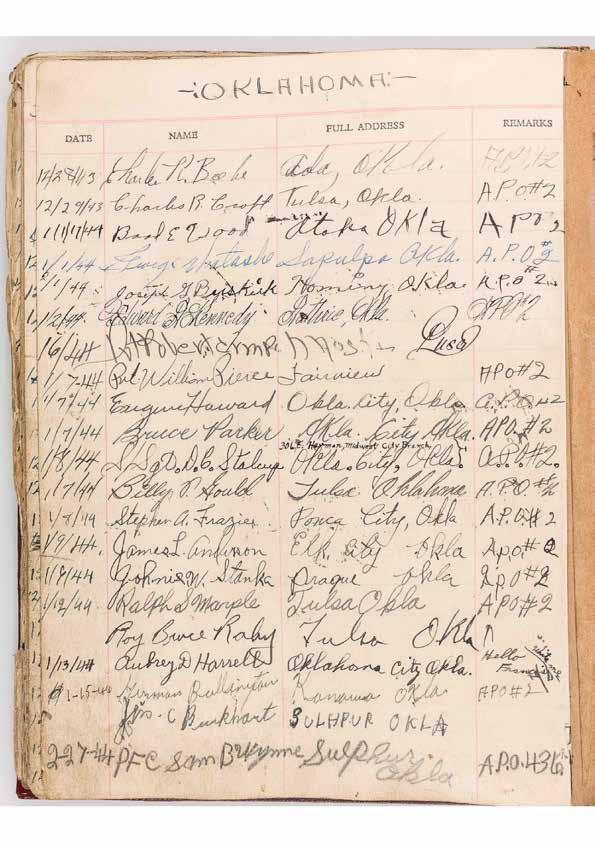 -:OKLAHOMA:-
DATE NAME FULL ADDRESS REMARKS
12/28/43 Charles R. Ada, Okla. A.P.O. #2
12/29/43 Charles R. Croft Tulsa, Okla. A.P.O #2
1/1/44 Basil E Wood Atoka OKla A P O 2
1/1/44 Sapulpa Okla. A.P.O #2
1/1/44 Joseph G Buskirk Hominy, Okla. A.P.O #2
1/2/44 Edward Kennedy Guthrie, Okla. APO #2
1/6/44
1/7-44 Pvt. William Pierce Fairview APO #2
1/7/44 Eugene Howard Okla. City, Okla A.P.O #2
1/7/44 Bruce Parker Okla. City, Okla. APO. #2
301 E. Midwest City Branch
1/8/44 S/Sg. D. C. Okla. City, Okla. A.P.O. #2.
1/7/44 Billy P. Gould Tulsa Oklahoma A.P.O. #2
1/8/44 Stephen A. Frazier Ponca City, Okla A.P.O. #2
1/9/44 James L. Anderson Elk City Okla A.P.O. #2
1/9/44 Johnie W. Stanka Prague Okla A.P.O #2
1/12/44 Ralph S Marple Tulsa Okla APO #2
Roy Bruce Raby Tulsa Okla
1/13/44 Aubrey D Harrell Oklahoma City Okla. Hello
1-15-44 Konawa Okla APO #2
Jas. C Burkhart SULHPUR OKLA
2-27-44 PFC Sam Sulphur. Okla A.P.O. 436